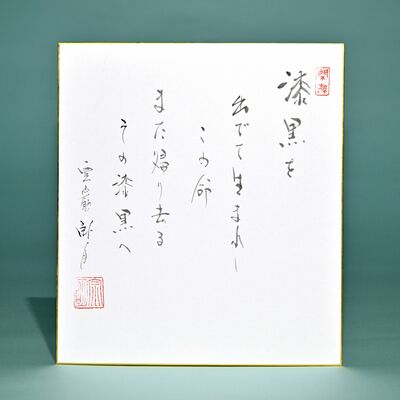 漆黒を
出でて生まれし
この命
また帰り去る
その漆黒へ